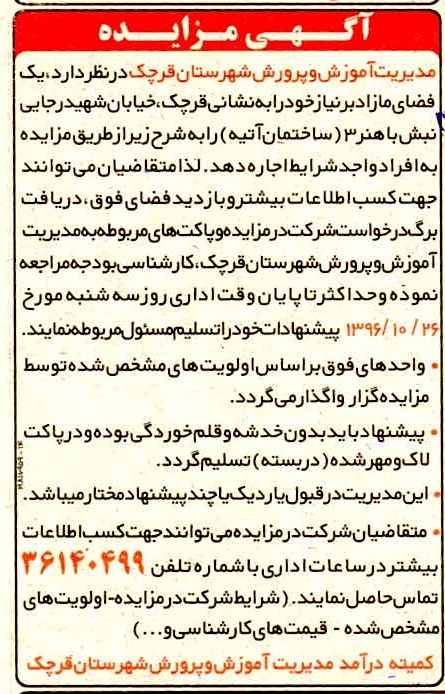 آگهی مزایده
مدیریت آموزش و پرورش شهرستان قرچک در نظر دارد، یک
فضای مازاد بر نیاز خود را به نشانی قرچک، خیابان شهید رجایی
نبش باهنر ۳ (ساختمان آتیه) را به شرح زیر از طریق مزایده
به افراد واجد شرایط اجاره دهد. لذا متقاضیان می توانند
جهت کسب اطلاعات بیشتر و بازدید فضای فوق، دریافت
برگ درخواست شرکت در مزایده و پاکت های مربوطه به مدیریت
آموزش و پرورش شهرستان قرچک، کارشناسی بودجه مراجعه
نموده و حداکثر تا پایان وقت اداری روز سه شنبه مورخ
۱۳۹۶/۱۰/۲۶ پیشنهادات خود را تسلیم مسئول مربوطه نمایند.
• واحدهای فوق براساس اولویت های مشخص شده توسط
مزایده گزار واگذار می گردد.
• پیشنهاد باید بدون خدشه و قلم خوردگی بوده و در پاکت
لاک و مهر شده (دربسته) تسلیم گردد.
• این مدیریت در قبول یا رد یک یا چند پیشنهاد مختار میباشد.
• متقاضیان شرکت در مزایده می توانند جهت کسب اطلاعات
بیشتر در ساعات اداری با شماره تلفن ۳۶۱۴۰۴۹۹
تماس حاصل نمایند. (شرایط شرکت در مزایده-اولویت های
مشخص شده - قیمت های کارشناسی و...)
کمیته درآمد مدیریت آموزش و پرورش شهرستان قرچک